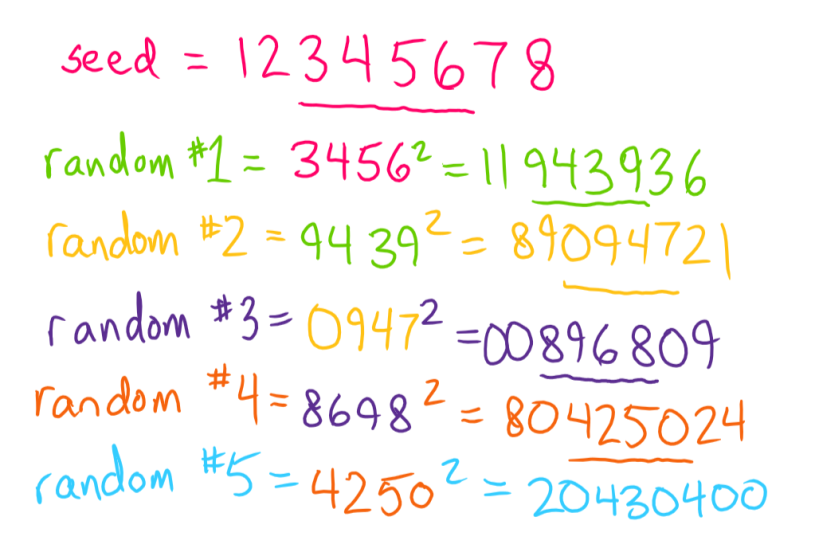 seed = 12345678
random #1 = 3456² = 11943936
random #2 = 9439² = 89094721
random #3 = 0947² = 00896809
random #4 = 8698² = 80425024
random #5 = 4250² = 20430400